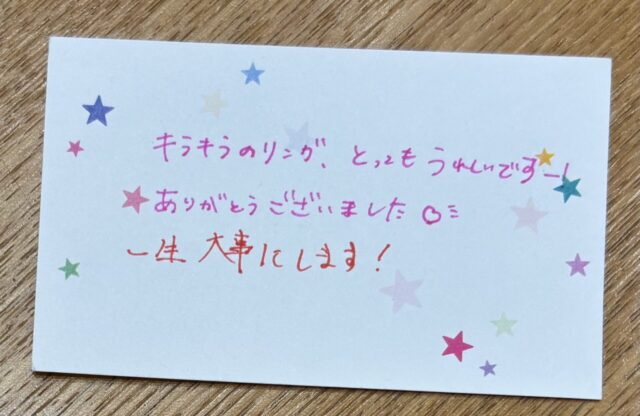 キラキラのリング、とってもうれしいですー!
ありがとうございました
一生大事にします!